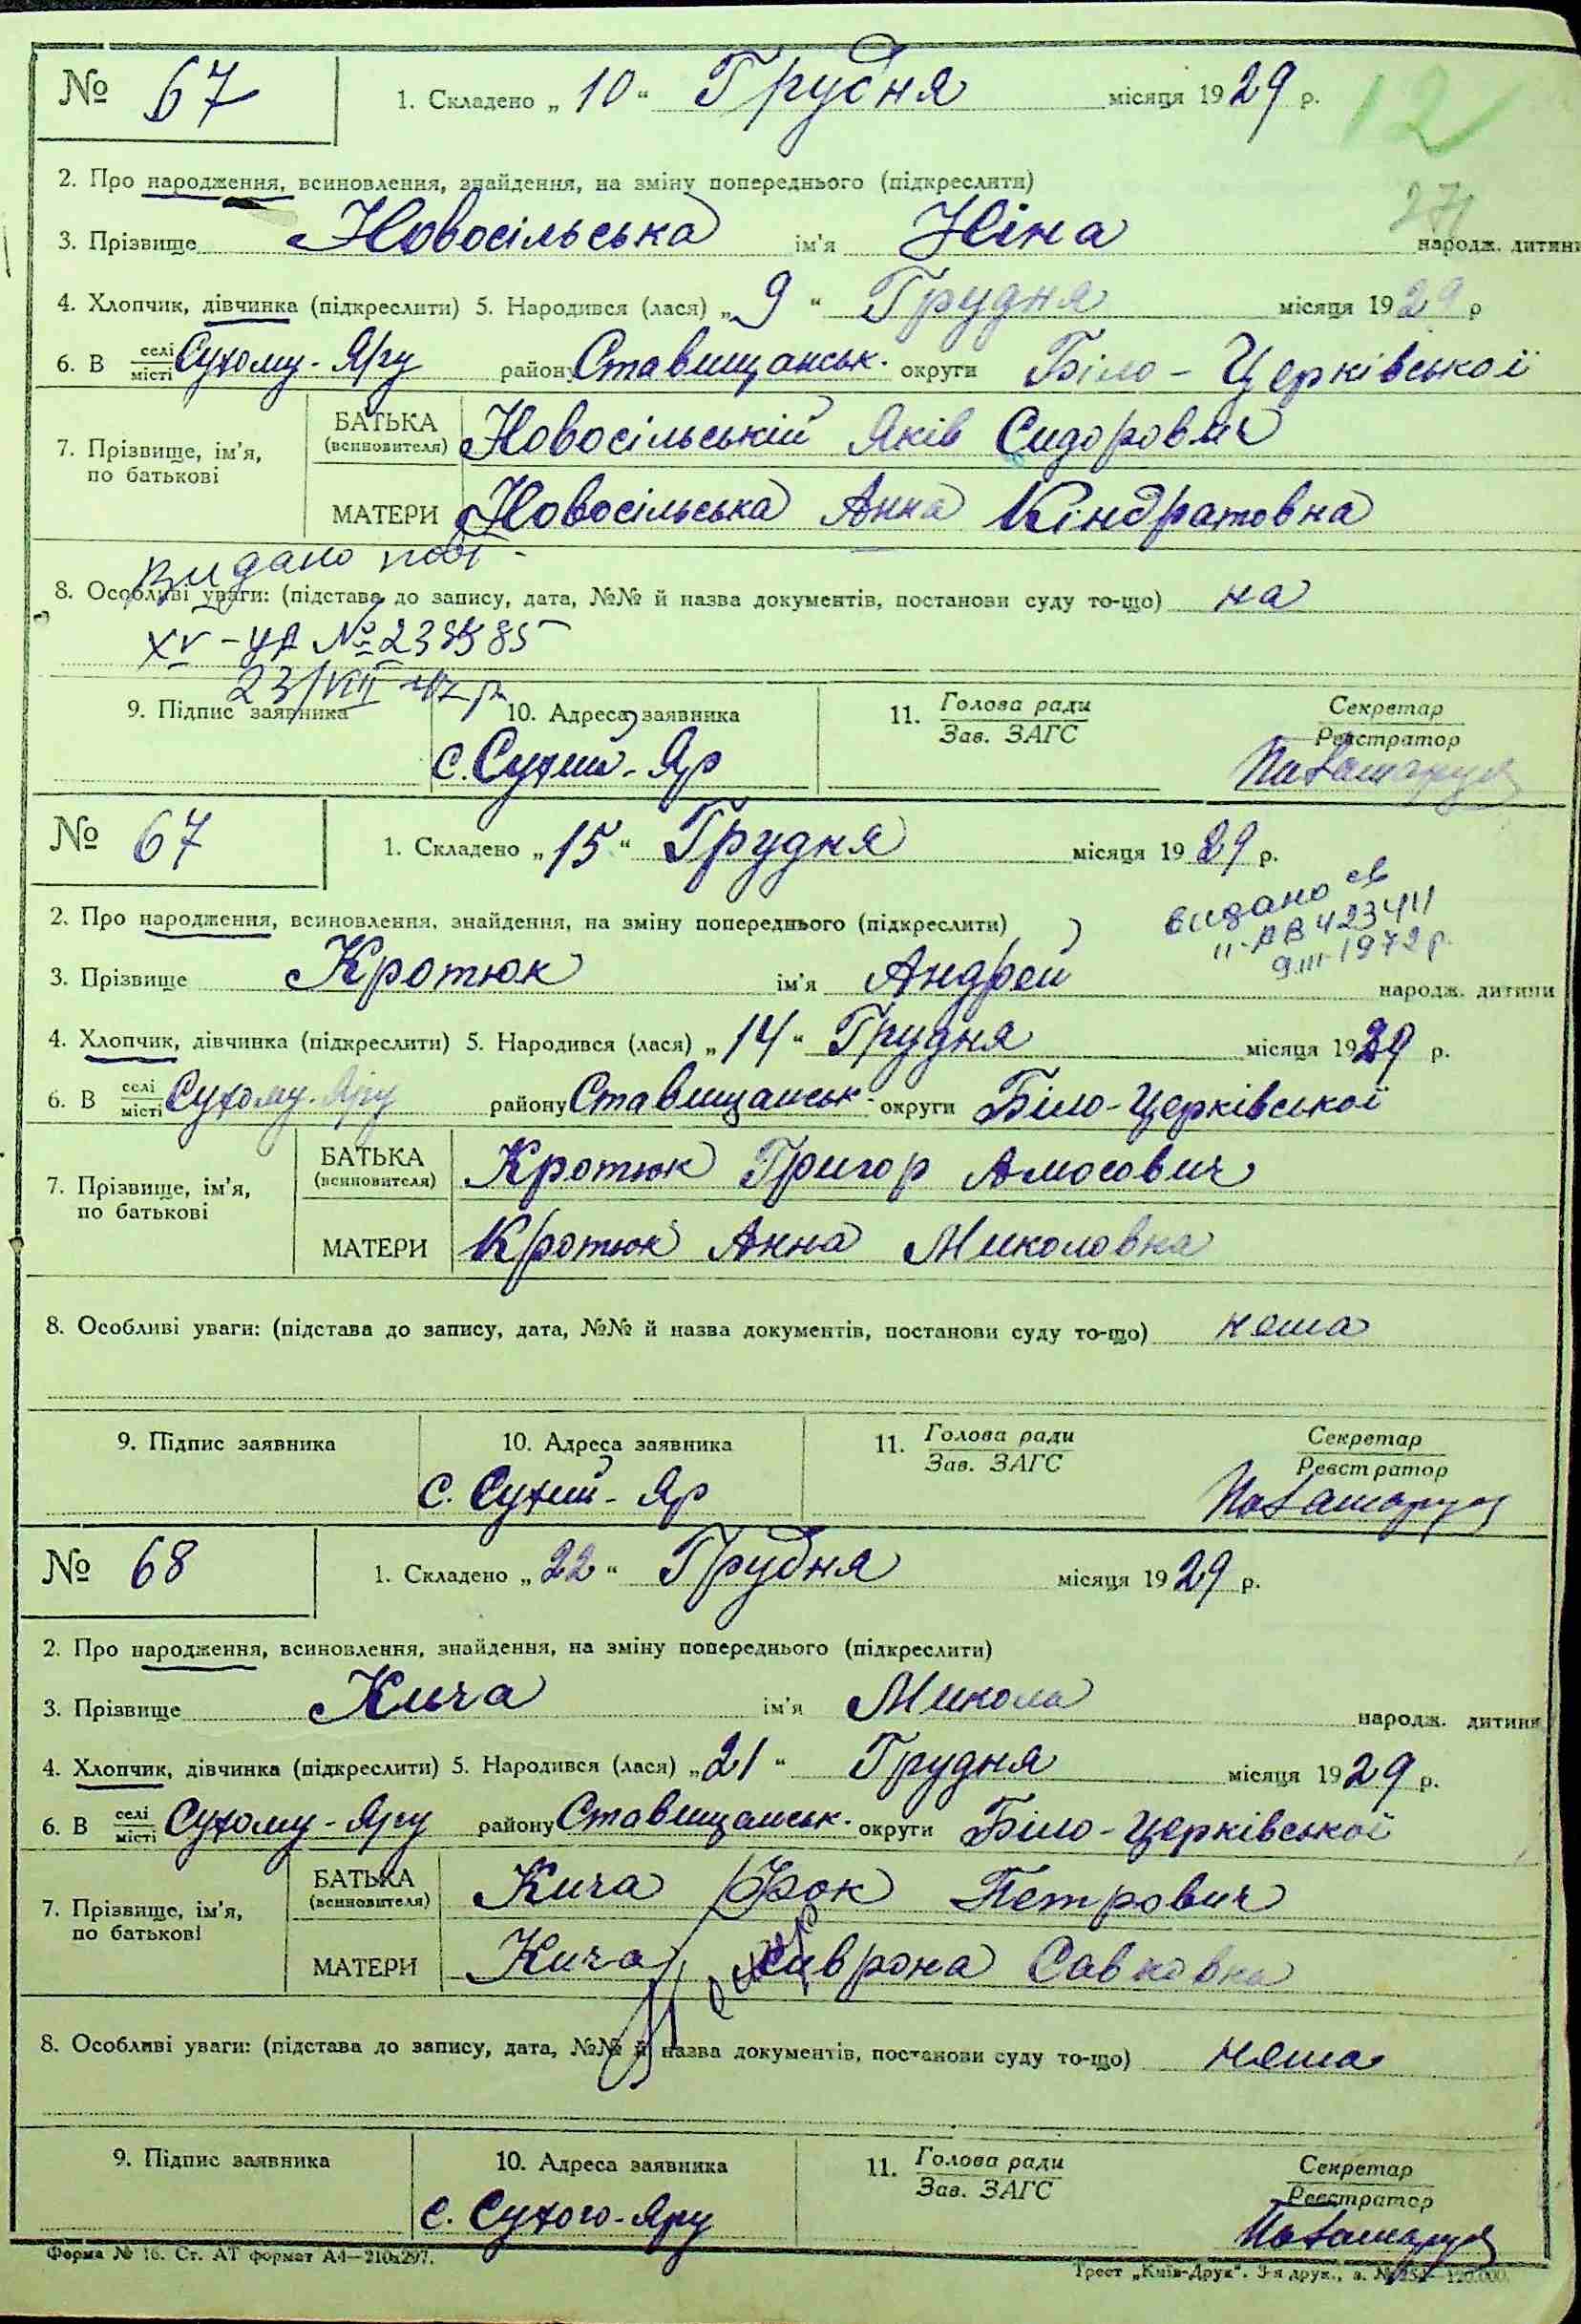 № 67 1. Складено „10“ Грудня місяця 1929 р. 12
2. Про народження, всиновлення, знайдення, на зміну попереднього (підкреслити)
3. Прізвище Новосільська ім'я Ніна народж. дитини
4. Хлопчик, дівчинка (підкреслити) 5. Народився (лася) „9“ Грудня місяця 1929 р
6. В селі місті Сухому-Яру району Ставищанськ. округи Біло-Церківської
7. Прізвище, ім'я, по батькові БАТЬКА (всиновителя) Новосільській Яків Сидорович
МАТЕРИ Новосільська Анна Кіндратовна
Видано пові-
8. Особливі уваги: (підстава до запису, дата, №№ й назва документів, постанови суду то-що) на
XV-УА №
23/VIII
9. Підпис заявника 10. Адреса заявника 11. Голова ради Зав. ЗАГС Секретар Реєстратор
с. Сухий-Яр
№ 67 1. Складено „15“ Грудня місяця 1929 р.
видано св
2. Про народження, всиновлення, знайдення, на зміну попереднього (підкреслити)
II-АВ 423411
9.III-1972 р.
3. Прізвище Кротюк ім'я Андрей народж. дитини
4. Хлопчик, дівчинка (підкреслити) 5. Народився (лася) „14“ Грудня місяця 1929 р.
6. В селі місті Сухому-Яру району Ставищанськ. округи Біло-Церківської
7. Прізвище, ім'я, по батькові БАТЬКА (всиновителя) Кротюк Григор Амосович
МАТЕРИ Кротюк Анна Миколовна
8. Особливі уваги: (підстава до запису, дата, №№ й назва документів, постанови суду то-що) нема
9. Підпис заявника 10. Адреса заявника 11. Голова ради Зав. ЗАГС Секретар Реєстратор
с. Сухий-Яр
№ 68 1. Складено „22“ Грудня місяця 1929 р.
2. Про народження, всиновлення, знайдення, на зміну попереднього (підкреслити)
3. Прізвище Кича ім'я Микола народж. дитини
4. Хлопчик, дівчинка (підкреслити) 5. Народився (лася) „21“ Грудня місяця 1929 р.
6. В селі місті Сухому-Яру району Ставищанськ. округи Біло-Церківської
7. Прізвище, ім'я, по батькові БАТЬКА (всиновителя) Кича Фрок Петрович
МАТЕРИ Кича Савковна
8. Особливі уваги: (підстава до запису, дата, №№ й назва документів, постанови суду то-що) нема
9. Підпис заявника 10. Адреса заявника 11. Голова ради Зав. ЗАГС Секретар Реєстратор
с. Сухого-Яру
Форма № 16. Ст. АТ формат А4—210x297.
Трест „Київ-Друк“. 3-я друк., з. №